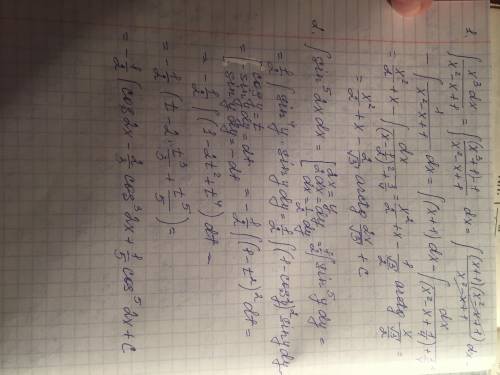 1. ∫ x³dx / (x²-x+1) = ∫ ((x³+1)-1) / (x²-x+1) dx = ∫ (x+1)(x²-x+1) / (x²-x+1) dx -
- ∫ 1 / (x²-x+1) dx = ∫ (x+1) dx - ∫ dx / ((x²-x+1/4)+3/4) =
= x²/2 + x - ∫ dx / ((x-1/2)²+3/4) = x²/2 + x - 1/(√3/2) arctg x/(√3/2) =
= x²/2 + x - 2/√3 arctg 2x/√3 + C
2. ∫ sin⁵ 2x dx = [2x=y 2dx=dy dx=1/2 dy] = 1/2 ∫ sin⁵ y dy =
= 1/2 ∫ sin⁴ y · sin y dy = 1/2 ∫ (1-cos²y)² sin y dy
= [cos y = t -sin y dy = dt sin y dy = -dt] = -1/2 ∫ (1-t²)² dt =
= -1/2 ∫ (1-2t²+t⁴) dt =
= -1/2 (t - 2·t³/3 + t⁵/5) =
= -1/2 (cos 2x - 2/3 cos³ 2x + 1/5 cos⁵ 2x + C